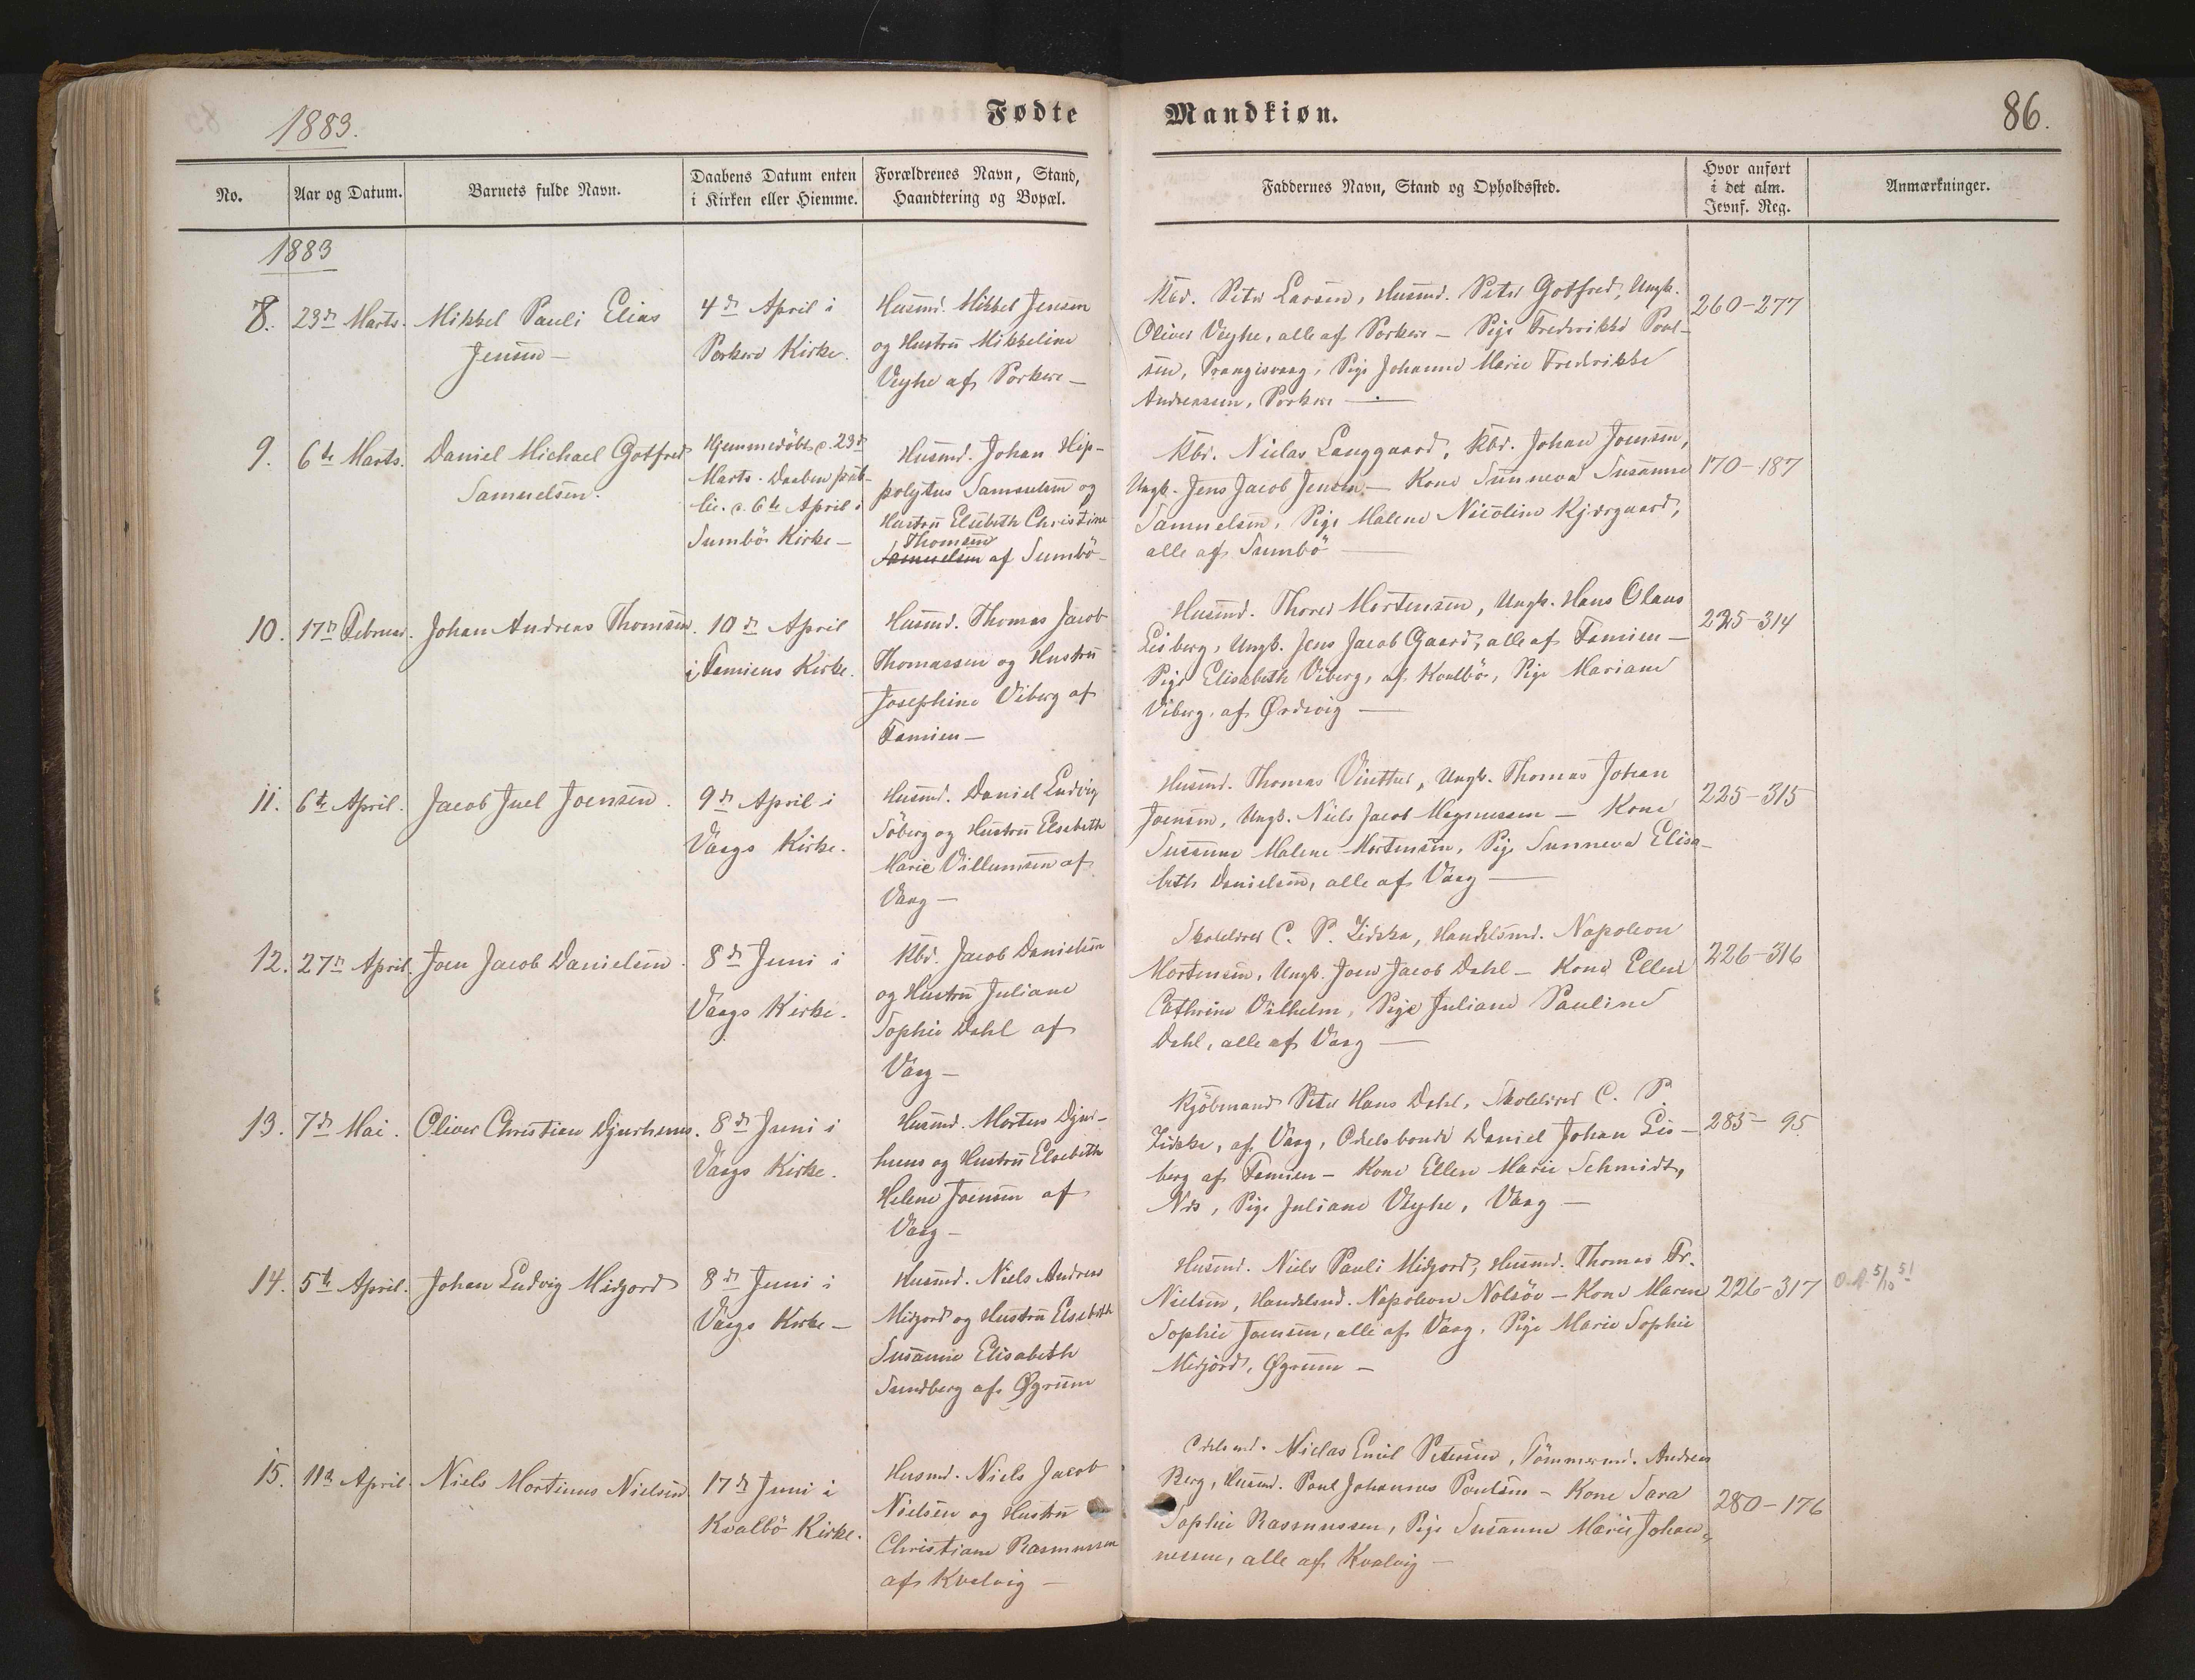 1883.
Fødte
Mandkiøn.
86.
No.
Aar og Datum.
Barnets fulde Navn.
Daabens Datum enten
i Kirken eller Hiemme.
Forældrenes Navn, Stand,
Haandtering og Bopæl.
Faddernes Navn, Stand og Opholdssted.
Hvor anført
i det alm.
Jevnf. Reg.
Anmærkninger.
1883
8.
23de Marts.
Mikkel Pauli Elias
Jensen —
4de April i
Porkere Kirke.
Husmd. Mikkel Jensen
og Hustru Mikkeline
Veyhe af Porkere —
Kbd. Peter Larsen, Husmd. Peter Gotfred, Ungk.
Oliver Veyhe, alle af Porkere — Pige Fredrikke Poul-
sen, Trangisvaag, Pige Johanne Marie Fredrikke
Andreassen, Porkere —
260-277
9.
6te Marts.
Daniel Michael Gotfred
Samuelsen.
Hjemmedöbt d. 23de
Marts. Daaben pub-
lic. d. 6te April i
Sumbö Kirke —
Husmd. Johan Hip-
polytus Samuelsen og
Hustru Elsebeth Christine
Thomsen
Samuelsen af Sumbö —
Kbd. Niclas Langgaard, Kbd. Johan Joensen,
Ungk. Jens Jacob Jensen — Kone Sunneva Susanne
Samuelsen, Pige Malene Nicoline Kjærgaard,
alle af Sumbö —
170-187
10.
17de Februar.
Johan Andreas Thomsen.
10de April
i Famiens Kirke.
Husmd. Thomas Jacob
Thomassen og Hustru
Josephine Viberg af
Famien —
Husmd. Thored Mortensen, Ungk. Hans Olaus
Eisberg, Ungk. Jens Jacob Gaard, alle af Famien —
Pige Elisabeth Viberg, af Kvalbö, Pige Mariane
Viberg, af Ørdevig —
225-314
11.
6te April.
Jacob Juel Joensen.
9de April i
Vaags Kirke.
Husmd. Daniel Ludvig
Söberg og Hustru Elsebeth
Marie Villumsen af
Vaag —
Husmd. Thomas Vinther, Ungk. Thomas Johan
Joensen, Ungk. Niels Jacob Magnussen — Kone
Susanne Malene Mortensen, Pige Sunneva Elisa-
beth Danielsen, alle af Vaag —
225-315
12.
27de April.
Joen Jacob Danielsen.
8de Juni i
Vaags Kirke.
Kbd. Jacob Danielsen
og Hustru Juliane
Sophie Dahl af
Vaag —
Skolelærer C. P. Zidska, Handelsmd. Napoleon
Mortensen, Ungk. Joen Jacob Dahl — Kone Ellen
Cathrine Vilhelm, Pige Juliane Pauline
Dahl, alle af Vaag —
226-316
13.
7de Mai.
Oliver Christian Djurhuus.
8de Juni i
Vaags Kirke.
Husmd. Morten Djur-
huus og Hustru Elsebeth
Helene Joensen af
Vaag —
Kjöbmand Peter Hans Dahl, Skolelærer C. P.
Zidska, af Vaag, Odelsbonde Daniel Johan Eis-
berg af Famien — Kone Ellen Marie Schmidt,
Næs, Pige Juliane Veyhe, Vaag —
285-95
14.
5te April.
Johan Ludvig Midjord
8de Juni i
Vaags Kirke —
Husmd. Niels Andreas
Midjord og Hustru Elsebeth
Susanne Elisabeth
Sundberg af Øgrum
Husmd. Niels Pauli Midjord, Husmd. Thomas Fr.
Nielsen, Handelsmd. Napoleon Nolsöe — Kone Maren
Sophie Joensen, alle af Vaag, Pige Marie Sophie
Midjord, Øgrum —
226-317
D. A. 5/10 51
15.
11te April.
Niels Mortinus Nielsen
17de Juni i
Kvalbö Kirke.
Husmd. Niels Jacob
Nielsen og Hustru
Christiane Rasmussen
af Kvalvig —
Odelsmd. Niclas Emil Petersen, Tömmermd. Andreas
Berg, Husmd. Poul Johannes Poulsen — Kone Sara
Sophie Rasmussen, Pige Susanne Marie Johan-
nessen, alle af Kvalvig —
280-176